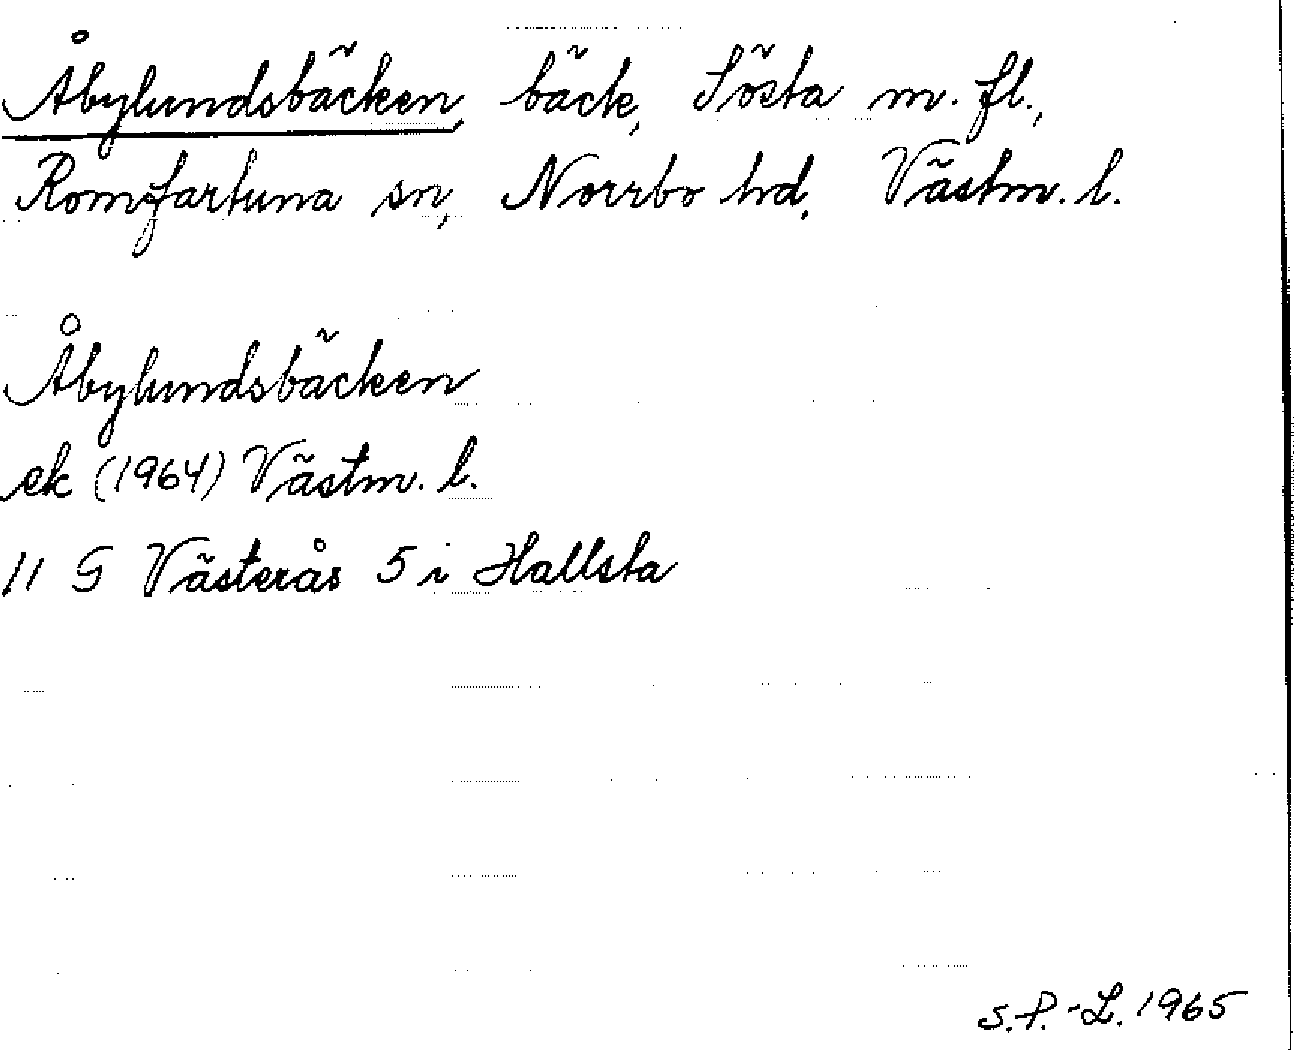 Åbylundsbäcken, bäck, Sösta m. fl.,
Romfartuna sn, Norrbo hd, Västm. l.
Åbylundsbäcken
ek (1964) Västm. l.
11 G Västerås 5 i Hallsta
S.P.-L. 1965